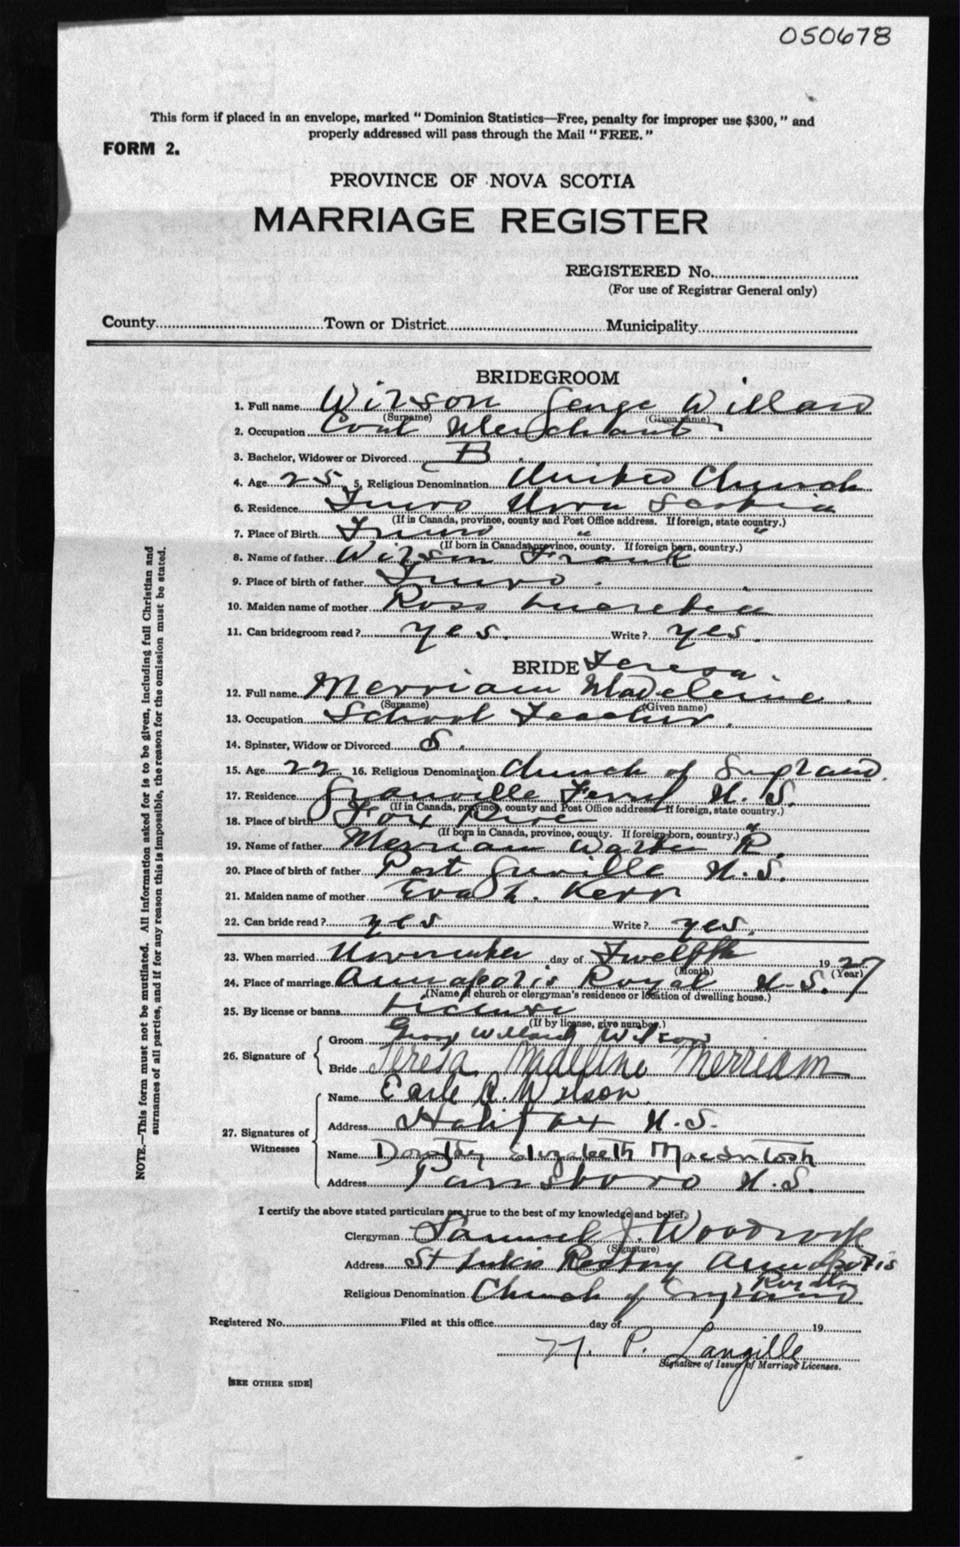 050678
This form if placed in an envelope, marked "Dominion Statistics—Free, penalty for improper use $300," and
properly addressed will pass through the Mail "FREE."
FORM 2.
PROVINCE OF NOVA SCOTIA
MARRIAGE REGISTER
REGISTERED No.
(For use of Registrar General only)
County Town or District Municipality
BRIDEGROOM
1. Full name Wilson George Willard
(Surname) (Given name)
2. Occupation Coal Merchant
3. Bachelor, Widower or Divorced B
4. Age 25 5. Religious Denomination United Church
6. Residence Truro Nova Scotia
(If in Canada, province, county and Post Office address. If foreign, state country.)
7. Place of Birth Truro " "
(If born in Canada, province, county. If foreign born, country.)
8. Name of father Wilson Frank
9. Place of birth of father Truro.
10. Maiden name of mother Ross Lucretia
11. Can bridegroom read? yes. Write? yes.
BRIDE Teresa
12. Full name Merriam Madeleine.
(Surname) (Given name)
13. Occupation School Teacher.
14. Spinster, Widow or Divorced S.
15. Age 22 16. Religious Denomination Church of England.
17. Residence Granville Ferry N.S.
(If in Canada, province, county and Post Office address. If foreign, state country.)
18. Place of birth Fox River "
(If born in Canada, province, county. If foreign born, country.)
19. Name of father Merriam Walter R.
20. Place of birth of father Port Greville N.S.
21. Maiden name of mother Eva L. Kerr
22. Can bride read? yes Write? yes.
23. When married November day of Twelfth 1927
(Month) (Year)
24. Place of marriage Annapolis Royal N.S.
(Name of church or clergyman's residence or location of dwelling house.)
25. By license or banns License
(If by license, give number.)
26. Signature of Groom George Willard Wilson
Bride Teresa Madeline Merriam
27. Signatures of Witnesses
Name Earle R. Wilson
Address Halifax N.S.
Name Dorothy Elizabeth MacIntosh
Address Parrsboro N.S.
I certify the above stated particulars are true to the best of my knowledge and belief.
Clergyman Samuel J. Woodroofe
(Signature)
Address St Lukes Rectory Annapolis
Royal
Religious Denomination Church of England
Registered No. Filed at this office day of 19
N. P. Langille
Signature of Issuer of Marriage Licenses.
[SEE OTHER SIDE]
NOTE.—This form must not be mutilated. All information asked for is to be given, including full Christian and
surnames of all parties, and if for any reason this is impossible, the reason for the omission must be stated.